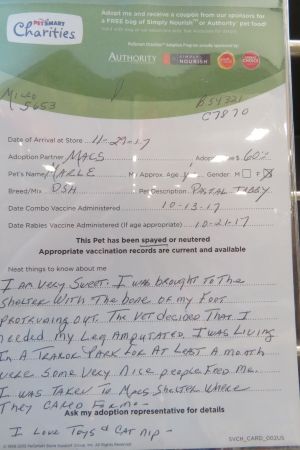 Adopt me and receive a coupon from our sponsors for
a FREE bag of Simply Nourish™ or Authority® pet food!
PETSMART
Charities
PetSmart Charities® Adoption Program proudly sponsored by:
AUTHORITY
SIMPLY
NOURISH
Micro
5653
B54321
C7870
Date of Arrival at Store 4-29-17
Adoption Partner MACS
Adoption $ 60.00
Pet's Name
My Approx. Age
Gender: M F
Breed/Mix DSH
Pet Description PASTAL TABBY
Date Combo Vaccine Administered 10-13-17
Date Rabies Vaccine Administered (If age appropriate) 10-21-17
This Pet has been spayed or neutered
Appropriate vaccination records are current and available
Neat things to know about me
I AM VERY SWEET. I WAS BROUGHT TO THE
SHELTER WITH THE BONE OF MY FOOT
PROTRUDING OUT. THE VET DECIDED THAT I
NEEDED MY LEG AMPUTATED. I WAS LIVING
IN A TRAILOR PARK FOR AT LEAST A MONTH
WERE SOME VERY NICE PEOPLE FEED ME.
I WAS TAKEN TO MACS SHELTER WHERE
THEY CARED FOR ME-
Ask my adoption representative for details
I LOVE TOYS & CAT NIP -
SVCH_CARD_002US